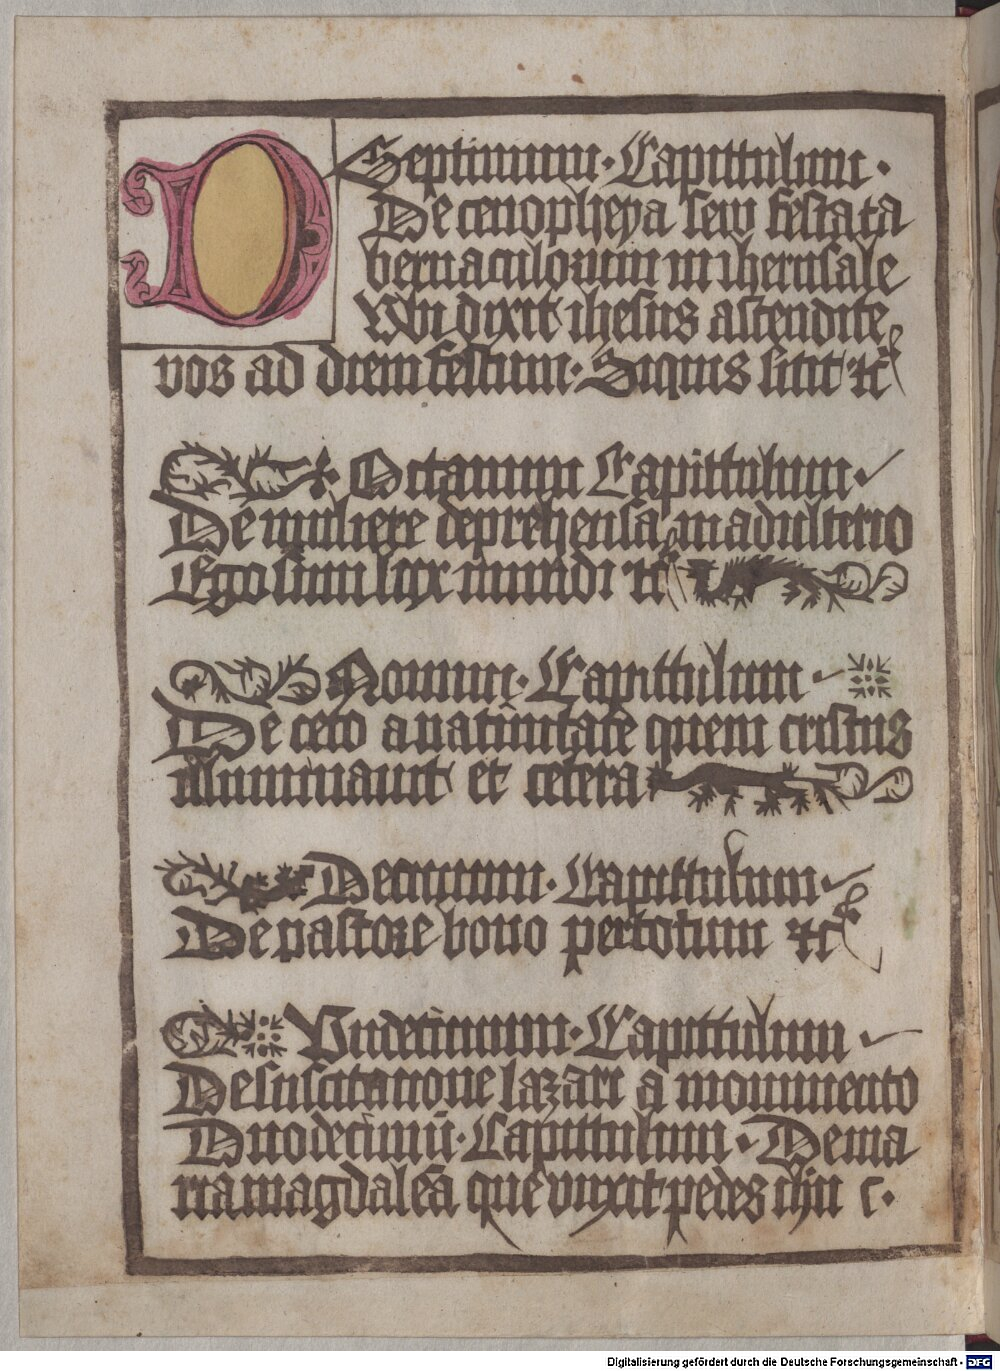 D
Septimum · Capittulum ·
De cenopheya seu festa ta
bernaculorum in iherusale
Vbi dixit ihesus ascendite
vos ad diem festum · Siquis sitit ⁊c̃
Octauum Capittulum ·
De muliere deprehensa in adulterio
Ego sum lux mundi ⁊c̃
Nonum · Capittulum
De ceco a natiuitate quem cristus
illuminauit et cetera
Decimum · Capittulum
De pastore bono per totum ⁊c̃
Vndecimum · Capittulum
De suscitacione lazari a monumento
Duodecimū · Capittulum · De ma
ria magdalēa que vnxit pedes ihu c ·
Digitalisierung gefördert durch die Deutsche Forschungsgemeinschaft · DFG